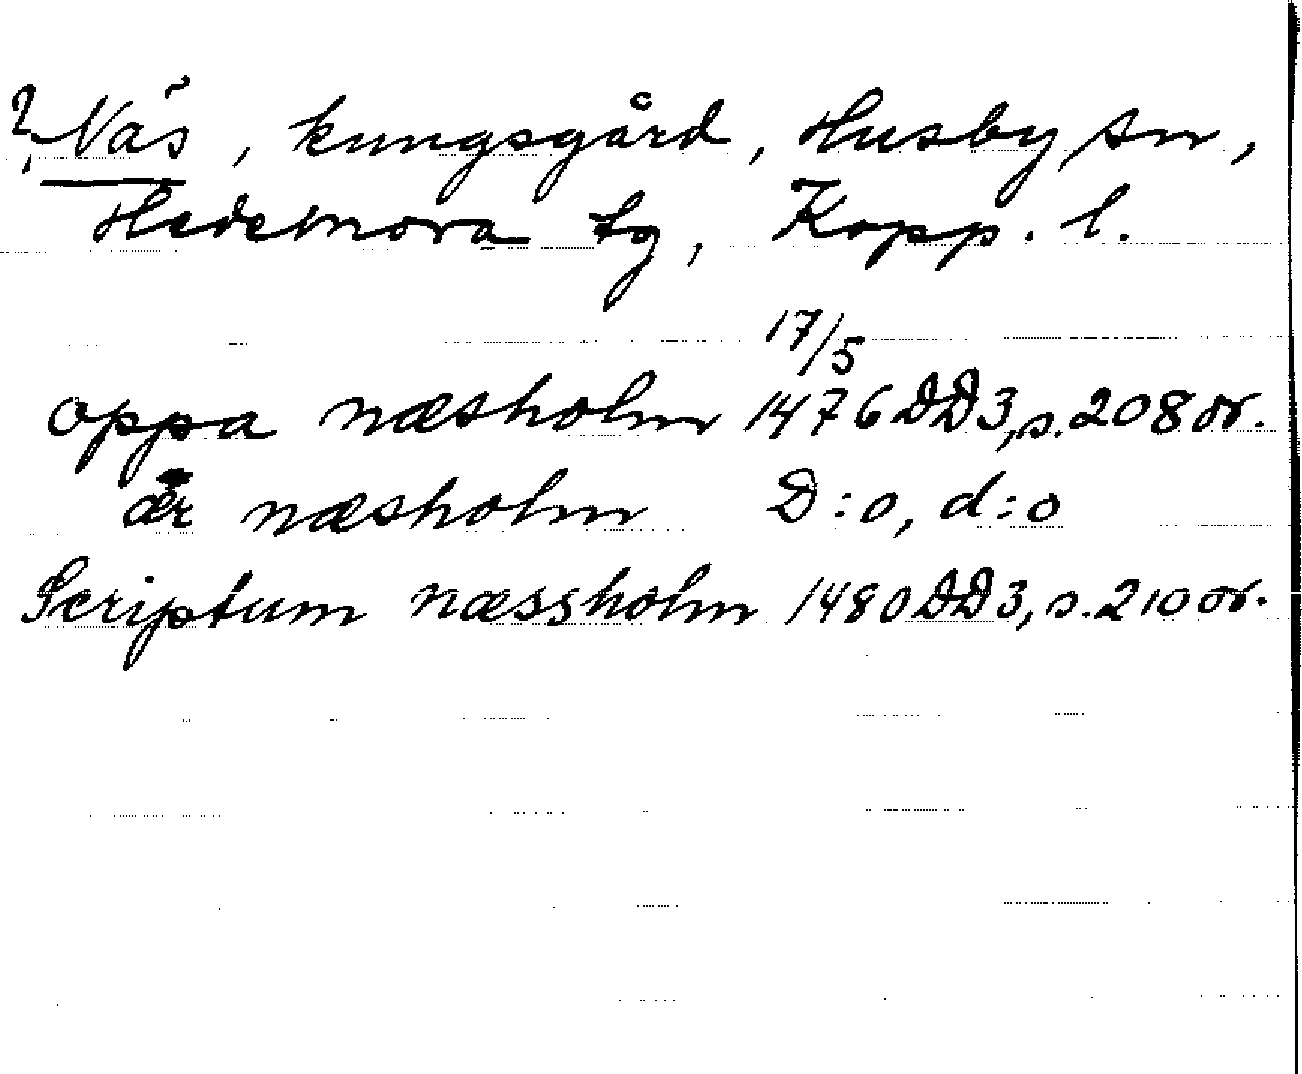 ? Näs, kungsgård, Husby sn,
Hedemora tg, Kopp. l.
17/5
oppa næsholm 1476 DD3, s. 208 or.
ær næsholm D:o, d:o
Scriptum næssholm 1480 DD3, s. 210 or.